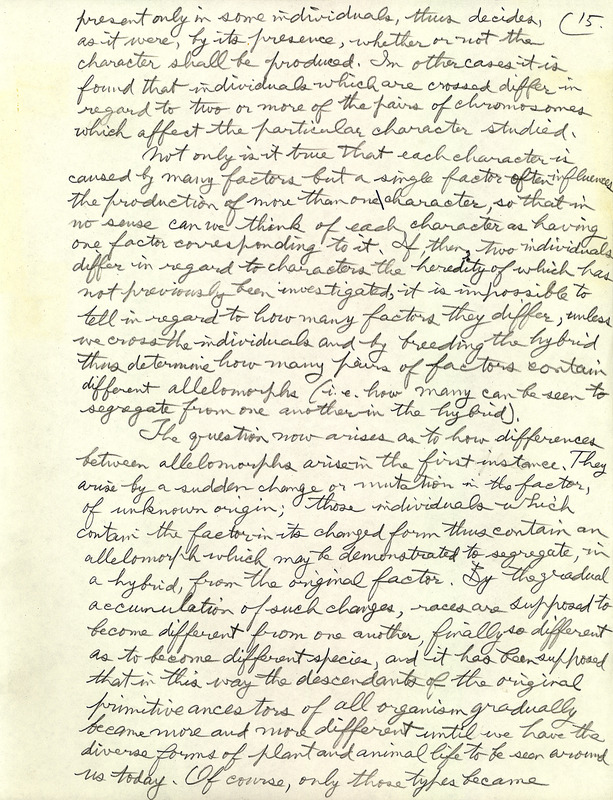 present only in some individuals, thus decides, (15.
as it were, by its presence, whether or not the
character shall be produced. In other cases it is
found that individuals which are crossed differ in
regard to two or more of the pairs of chromosomes
which affect the particular character studied.
Not only is it true that each character is
caused by many factors but a single factor often influences
the production of more than one character, so that in
no sense can we think of each character as having
one factor corresponding to it. If then, two individuals
differ in regard to characters the heredity of which has
not previously been investigated, it is impossible to
tell in regard to how many factors they differ, unless
we cross the individuals and by breeding the hybrid
thus determine how many pairs of factors contain
different allelomorphs (i.e. how many can be seen to
segregate from one another in the hybrid).
The question now arises as to how differences
between allelomorphs arise in the first instance. They
arise by a sudden change or mutation in the factor,
of unknown origin; those individuals which
contain the factor in its changed form thus contain an
allelomorph which may be demonstrated to segregate, in
a hybrid, from the original factor. By the gradual
accumulation of such changes, races are supposed to
become different from one another, finally so different
as to become different species, and it has been supposed
that in this way the descendants of the original
primitive ancestors of all organism gradually
became more and more different until we have the
diverse forms of plant and animal life to be seen around
us today. Of course, only those types became